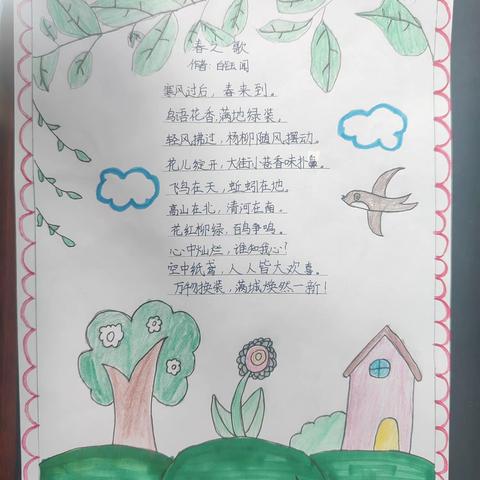 春之歌
作者:白玉闻
寒风过后,春来到。
鸟语花香,满地绿装,
轻风拂过,杨柳随风摆动。
花儿绽开,大街小巷香味扑鼻。
飞鸟在天,蚯蚓在地。
高山在北,清河在南。
花红柳绿,百鸟争鸣。
心中灿烂,谁知我心?
空中纸鸢,人人皆大欢喜。
万物换装,满城焕然一新!